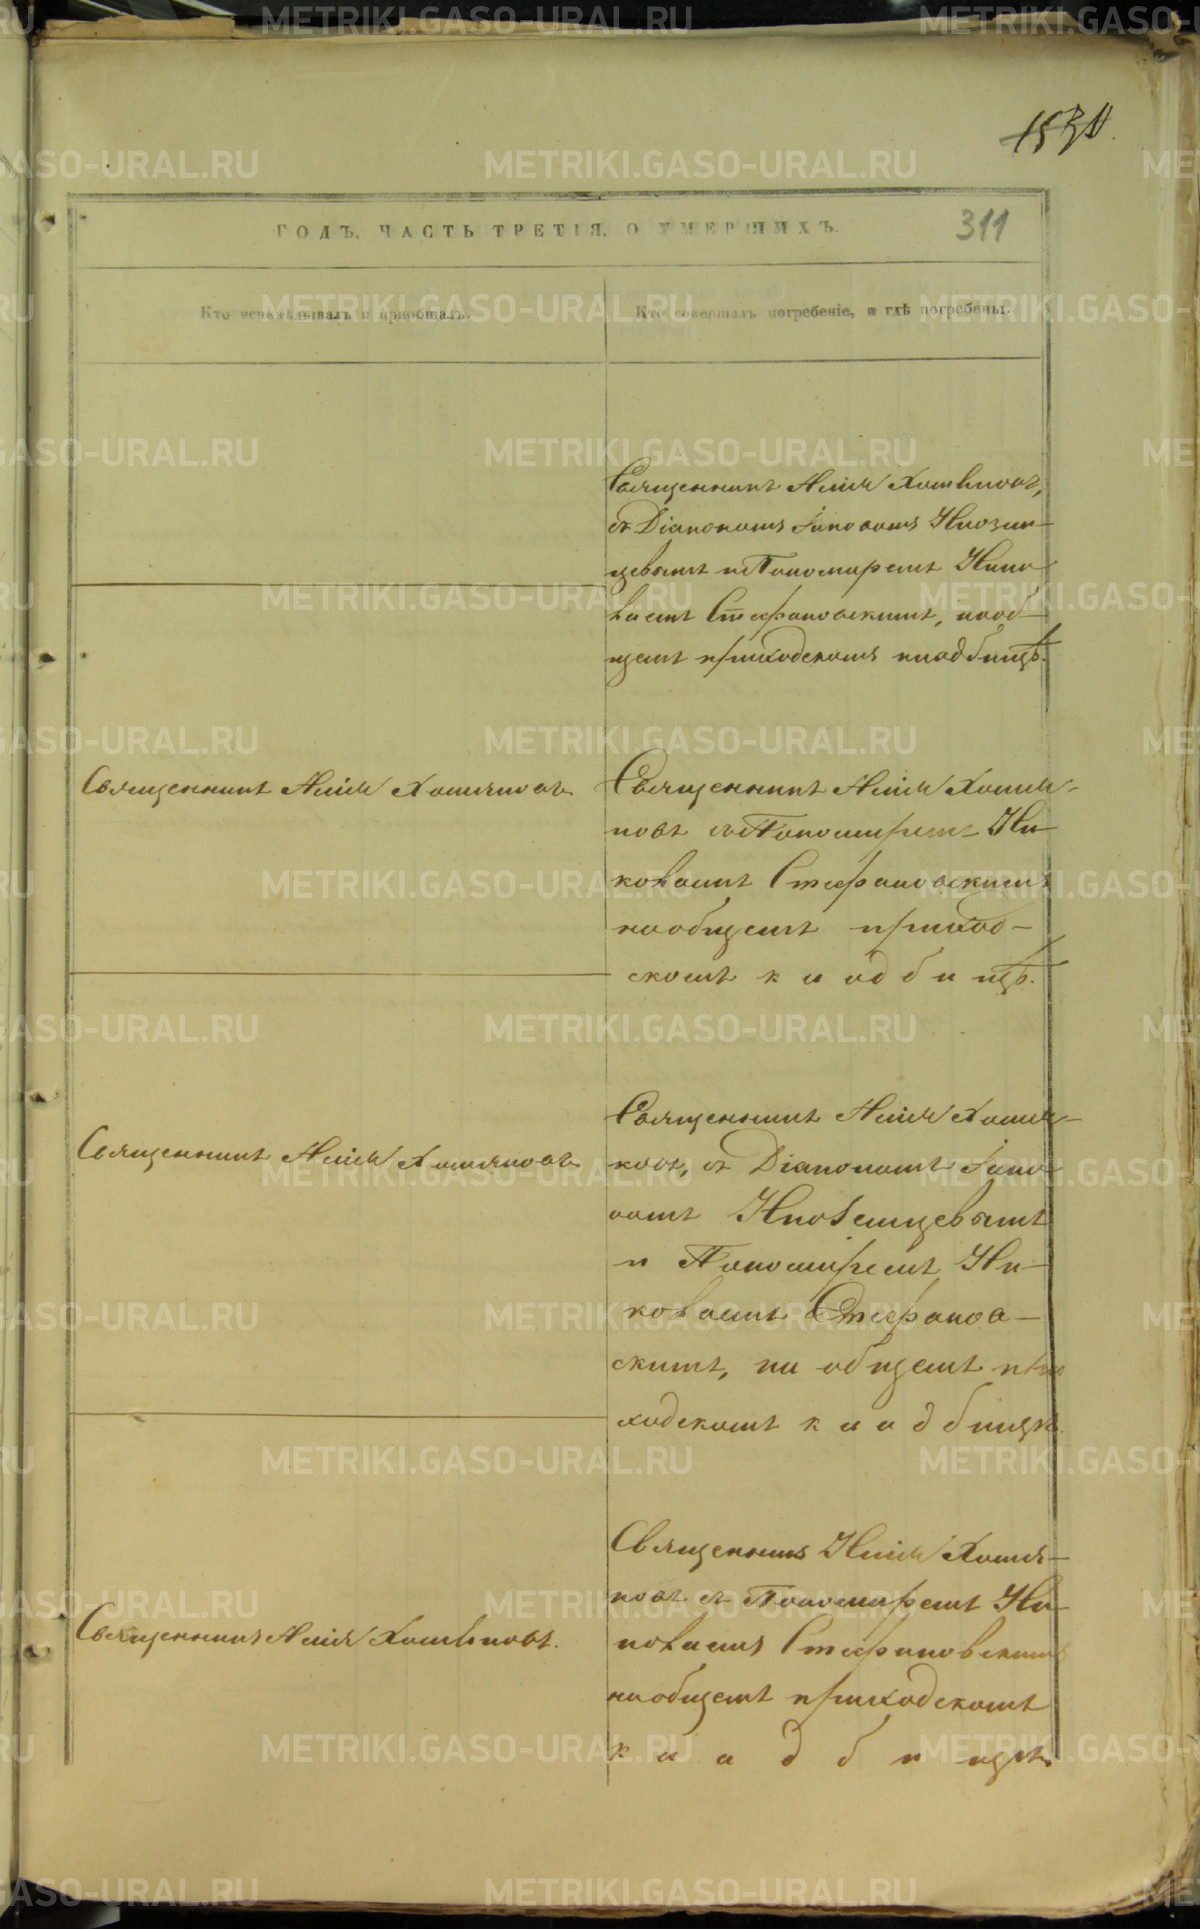 1530
ГОДЪ, ЧАСТЬ ТРЕТІЯ, О УМЕРШИХЪ.
311
Кто исповѣдывалъ и пріобщалъ.
Кто совершалъ погребеніе, и гдѣ погребены.
Священникъ Илія Хомяковъ,
съ Діакономъ
и Пономаремъ Нико
лаемъ Стефановскимъ, на об
щемъ приходскомъ кладбищѣ.
Священникъ Илія Хомяковъ
Священникъ Илія Хомя
ковъ съ Пономаремъ Ни
колаемъ Стефановскимъ
на общемъ приход
скомъ кладбищѣ.
Священникъ Илія Хомяковъ
Священникъ Илія Хомя
ковъ, съ Діакономъ
и Пономаремъ Ни
колаемъ Стефанов
скимъ, на общемъ при
ходскомъ кладбищѣ
Священникъ Илія Хомяковъ.
Священникъ Илія Хомя
ковъ съ Пономаремъ Ни
колаемъ Стефановскимъ
на общемъ приходскомъ
кладбищѣ.
METRIKI.GASO-URAL.RU